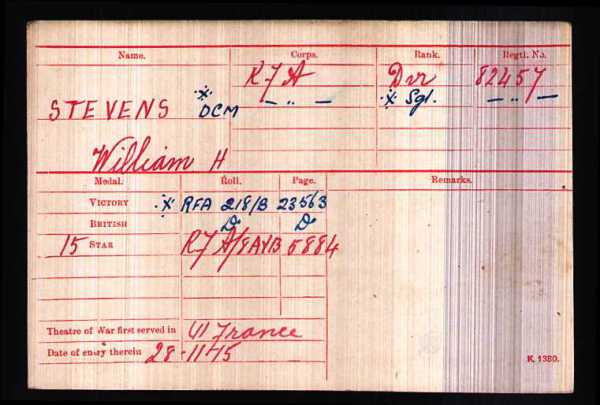 Name. Corps. Rank. Regtl. No.
R F A Dvr 82457
STEVENS ·x· DCM — „ — ·x· Sgt. — „ —
William H
Medal. Roll. Page. Remarks.
VICTORY ·x· RFA 218/B 23563
BRITISH D D
15 STAR R F A/8A 5884
Theatre of War first served in (1) France
Date of entry therein 28-11-15
K. 1380.